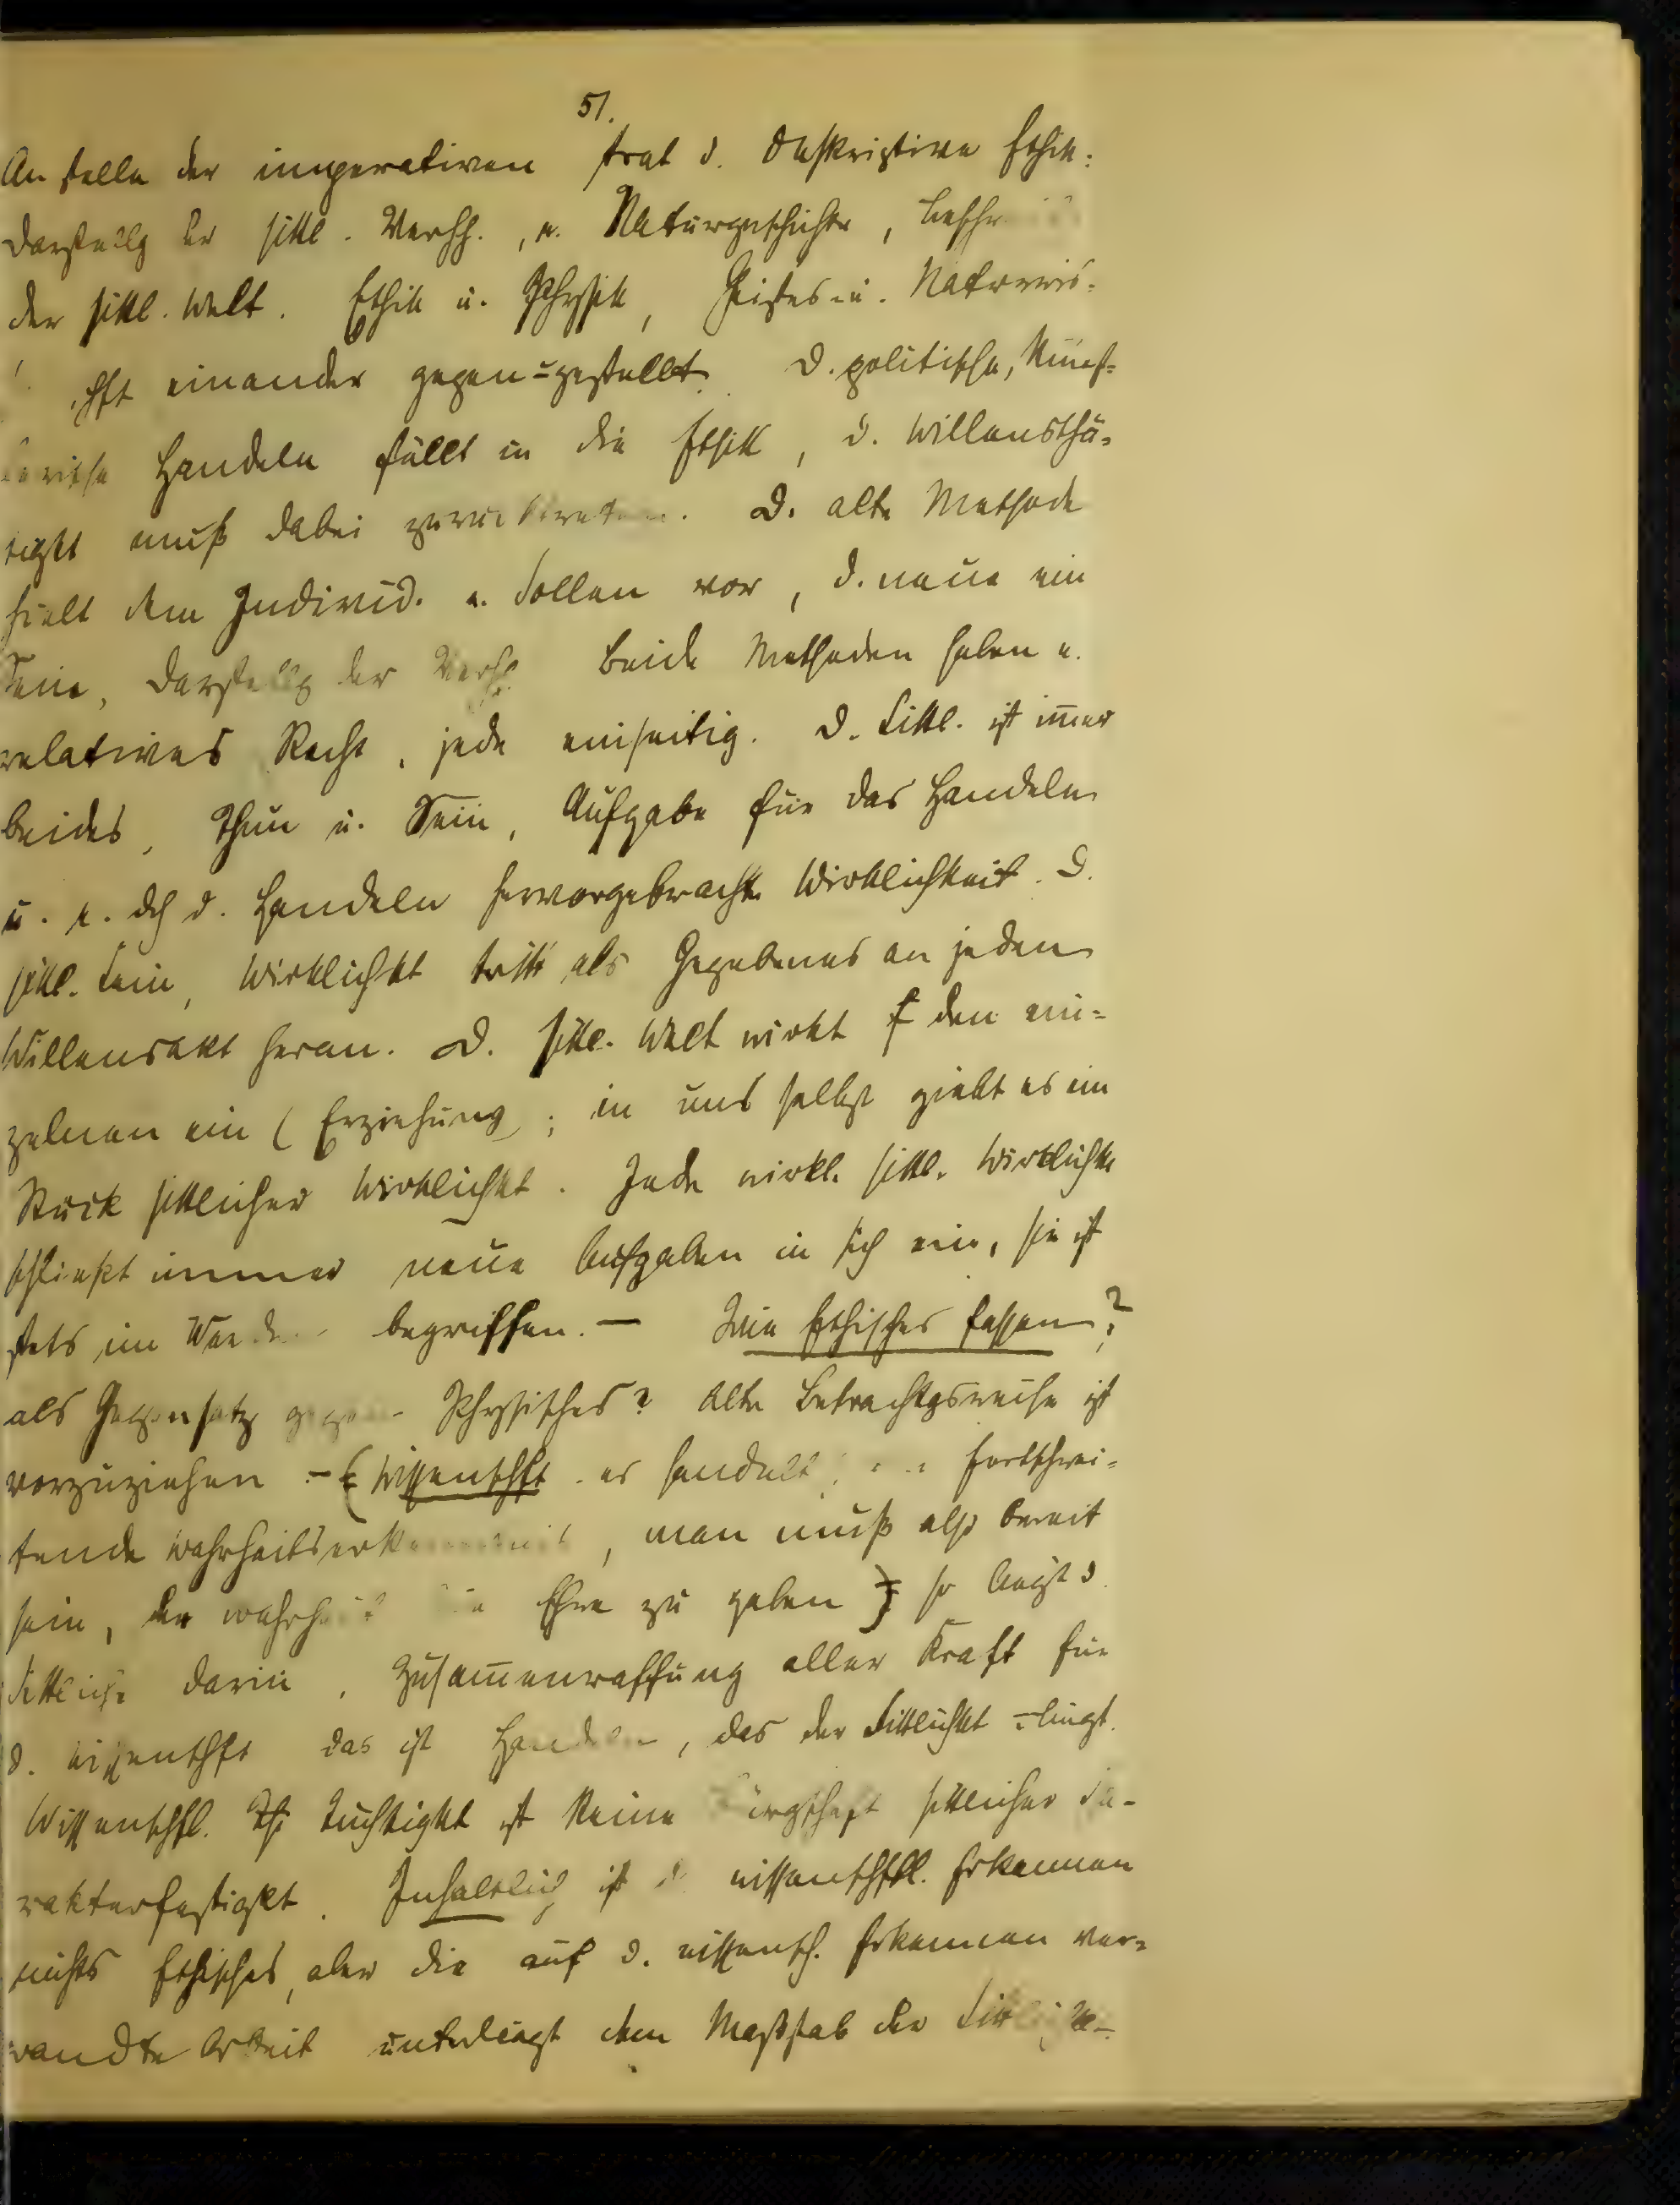 51.
An stelle der imperativen trat d. deskriptive Ethik:
Darstellg der sittl. Verhh., e. Naturgeschichte,
der sittl. Welt. Ethik u. Physik, Geistes- u. Naturwis-
schft einander gegen-gestellt. D. politische, künst-
lerische Handeln fällt in die Ethik, d. Willensthä-
tigkt muß dabei zurücktreten. D. alte Methode
hielt dem Individ. e. Sollen vor, d. neue ein
Sein, Darstellg der Verhh. Beide Methoden haben e.
relatives Recht, jede einseitig. D. Sittl. ist im̄er
beides, Thun u. Sein, Aufgabe für das Handeln
u. e. dch d. Handeln hervorgebrachte Wirklichkeit. D.
sittl. Sein, Wirklichkt tritt als Gegebenes an jeden
Willensakt heran. D. sittl. Welt wirkt f den ein-
zelnen ein (Erziehung; in uns selbst giebt es ein
Stück sittlicher Wirklichkt. Jede wirkl. sittl. Wirklichkt
schließt immer neue Aufgaben in sich ein, sie ist
stets im Werden begriffen. — Wie Ethisches fassen?
als Gegensatz gegen Physisches? Alte Betrachtgsweise ist
vorzuziehen - (Wissenschft es handelt fortschrei-
tende Wahrheitserkenntnis, man muß also bereit
sein, der Wahrheit die Ehre zu geben) so liegt d.
Sittliche darin, Zusam̄enraffung aller Kraft für
d. Wissenschft das ist Handeln, das der Sittlichkt -liegt.
Wissenschftl. Tüchtigkt ist keine Bürgschaft sittlicher Cha-
rakterfestigkt. Inhaltlich ist d. wissenschftl. Erkennen
nichts Ethisches, aber die auf d. wissensch. Erkennen ver-
wandte Arbeit unterliegt dem Maßstab der